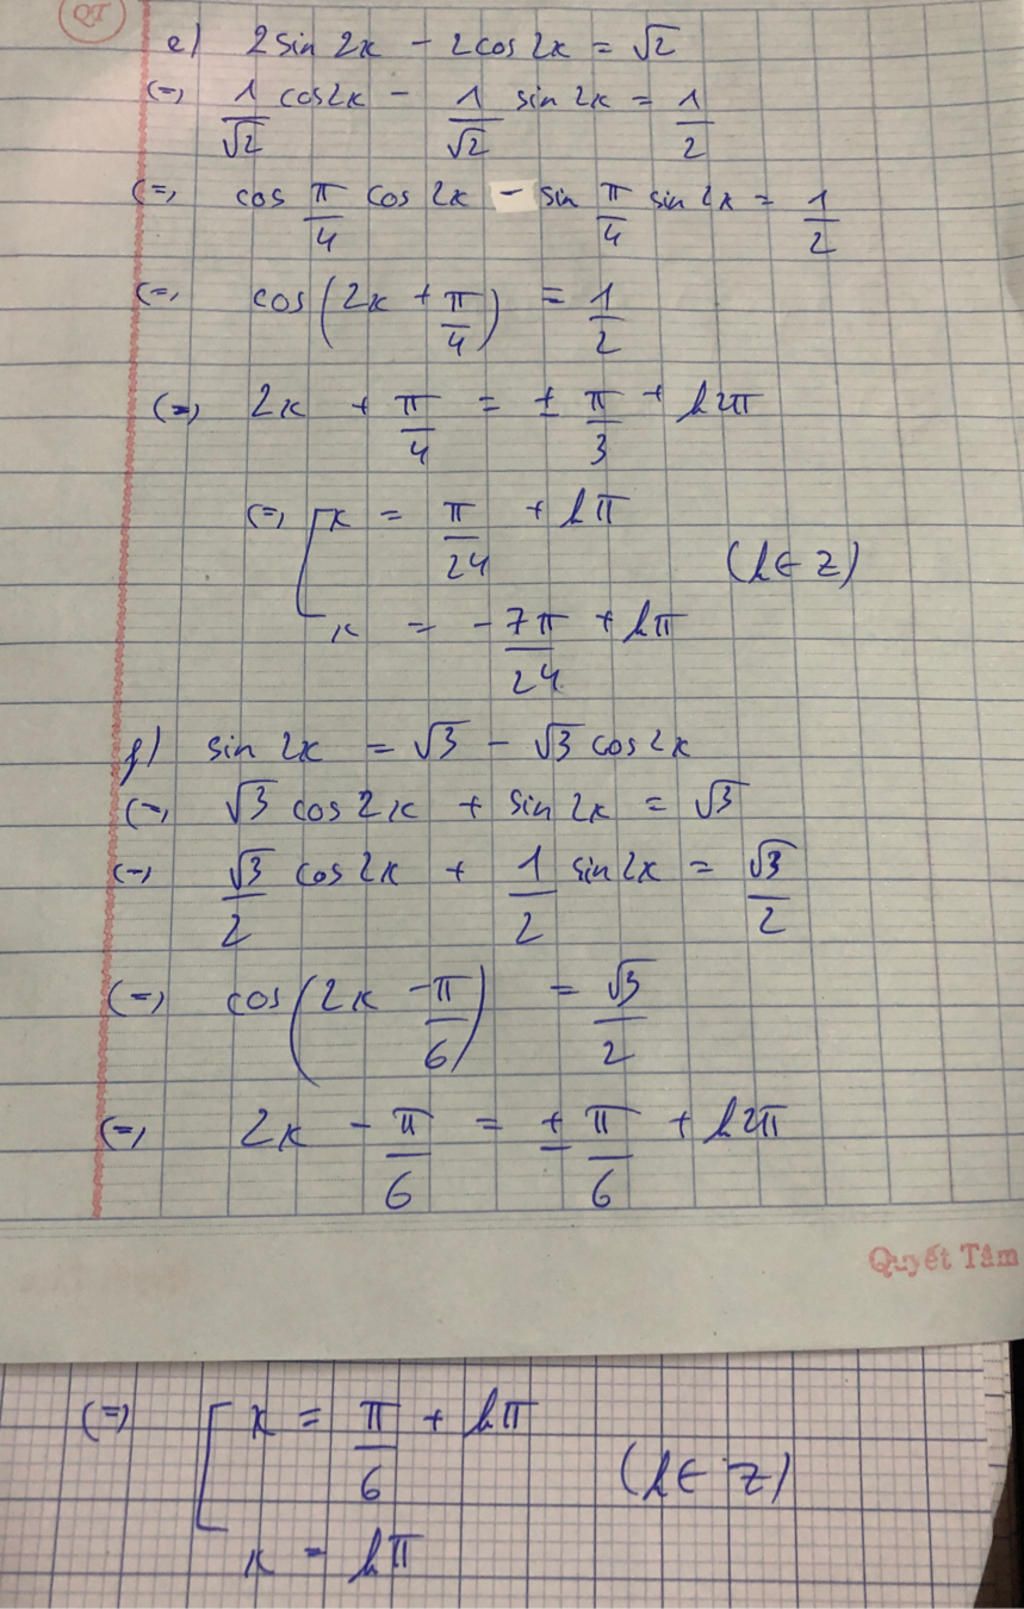 QT
e) 2sin 2x - 2cos 2x = √2
(=) 1/√2 cos2x - 1/√2 sin 2x = 1/2
(=) cos π/4 cos 2x - sin π/4 sin 2x = 1/2
(=) cos(2x + π/4) = 1/2
(=) 2x + π/4 = ± π/3 + k2π
(=) [ x = π/24 + kπ
(k ∈ Z)
x = - 7π/24 + kπ
f) sin 2x = √3 - √3 cos2x
(=) √3 cos 2x + sin 2x = √3
(=) √3/2 cos 2x + 1/2 sin 2x = √3/2
(=) cos(2x - π/6) = √3/2
(=) 2x - π/6 = ± π/6 + k2π
Quyết Tâm
(=) [ x = π/6 + kπ
(k ∈ Z)
x = kπ